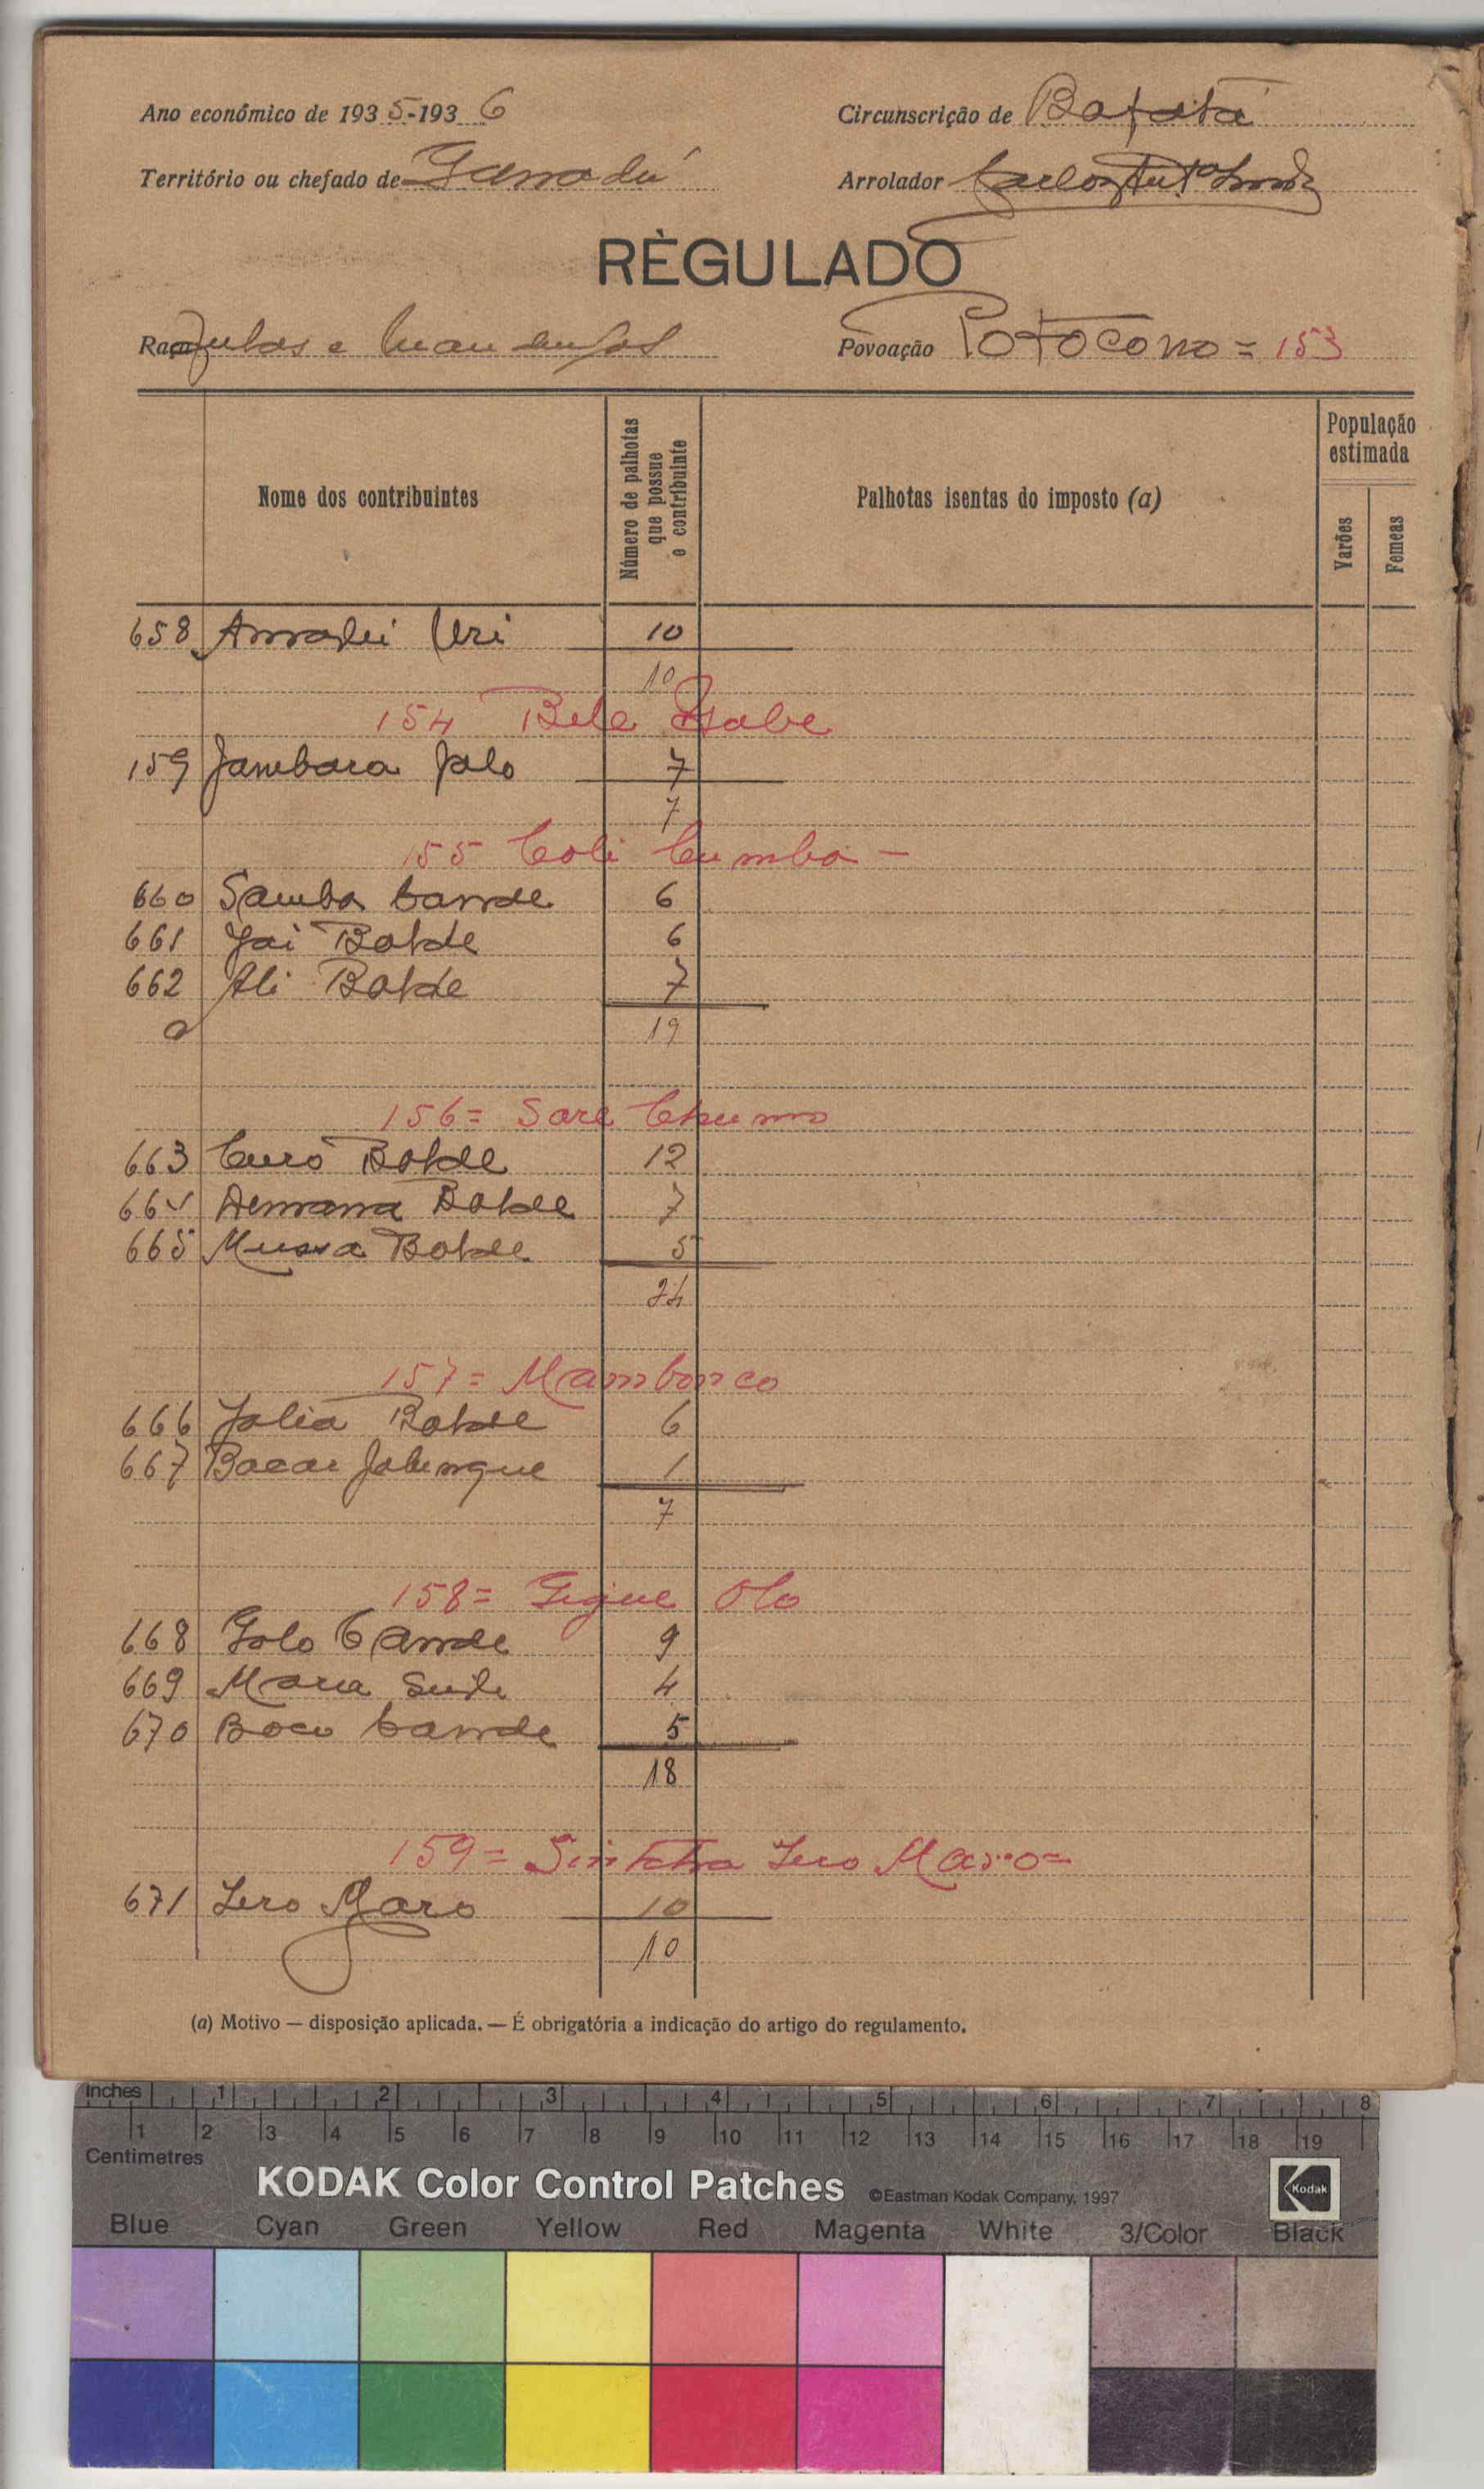 Ano económico de 1935-1936 Circunscrição de Bafatá
Território ou chefado de Ganadú Arrolador
RÈGULADO
Raça Fulas e Mandingas Povoação Potocono = 153
Nome dos contribuintes
Número de palhotas que possue o contribuinte
Palhotas isentas do imposto (a)
População estimada
Varões
Femeas
658 Amadú Uri 10
10
154 Bele
159 Jambara Jalo 7
7
155 Coli Cumba -
660 Samba Cande 6
661 Jai Balde 6
662 Ali Balde 7
19
156= Sare
663 Balde 12
664 Balde 7
665 Mussa Balde 5
24
157= Mambonco
666 Jalia Balde 6
667 Bacar 1
7
158= Olo
668 Golo Cande 9
669 4
670 Cande 5
18
159= Sintcha Maro=
671 Maro 10
10
(a) Motivo — disposição aplicada. — É obrigatória a indicação do artigo do regulamento.
Inches 1 2 3 4 5 6 7 8
1 2 3 4 5 6 7 8 9 10 11 12 13 14 15 16 17 18 19
Centimetres
KODAK Color Control Patches ©Eastman Kodak Company, 1997 Kodak
Blue Cyan Green Yellow Red Magenta White 3/Color Black